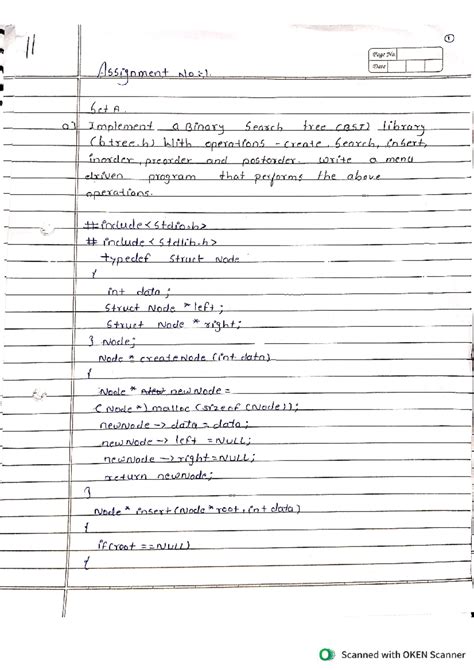 11
1
Page No.
Date
Assignment No:-1.
Set A.
a) Implement a Binary Search tree (BST) library
(btree.h) with operations - create, Search, insert,
inorder, preorder and postorder. write a menu
driven program that performs the above
operations.
#include<stdio.h>
# include < stdlib.h>
typedef struct Node
{
int data;
Struct Node *left;
Struct Node * right;
} Node;
Node * createNode (int data)
{
Node * newNode =
(Node *) malloc (sizeof (Node));
newNode -> data = data;
newNode -> left = NULL;
newNode -> right = NULL;
return newNode;
}
Node * insert (Node * root, int data)
{
if(root == NULL)
{
Scanned with OKEN Scanner